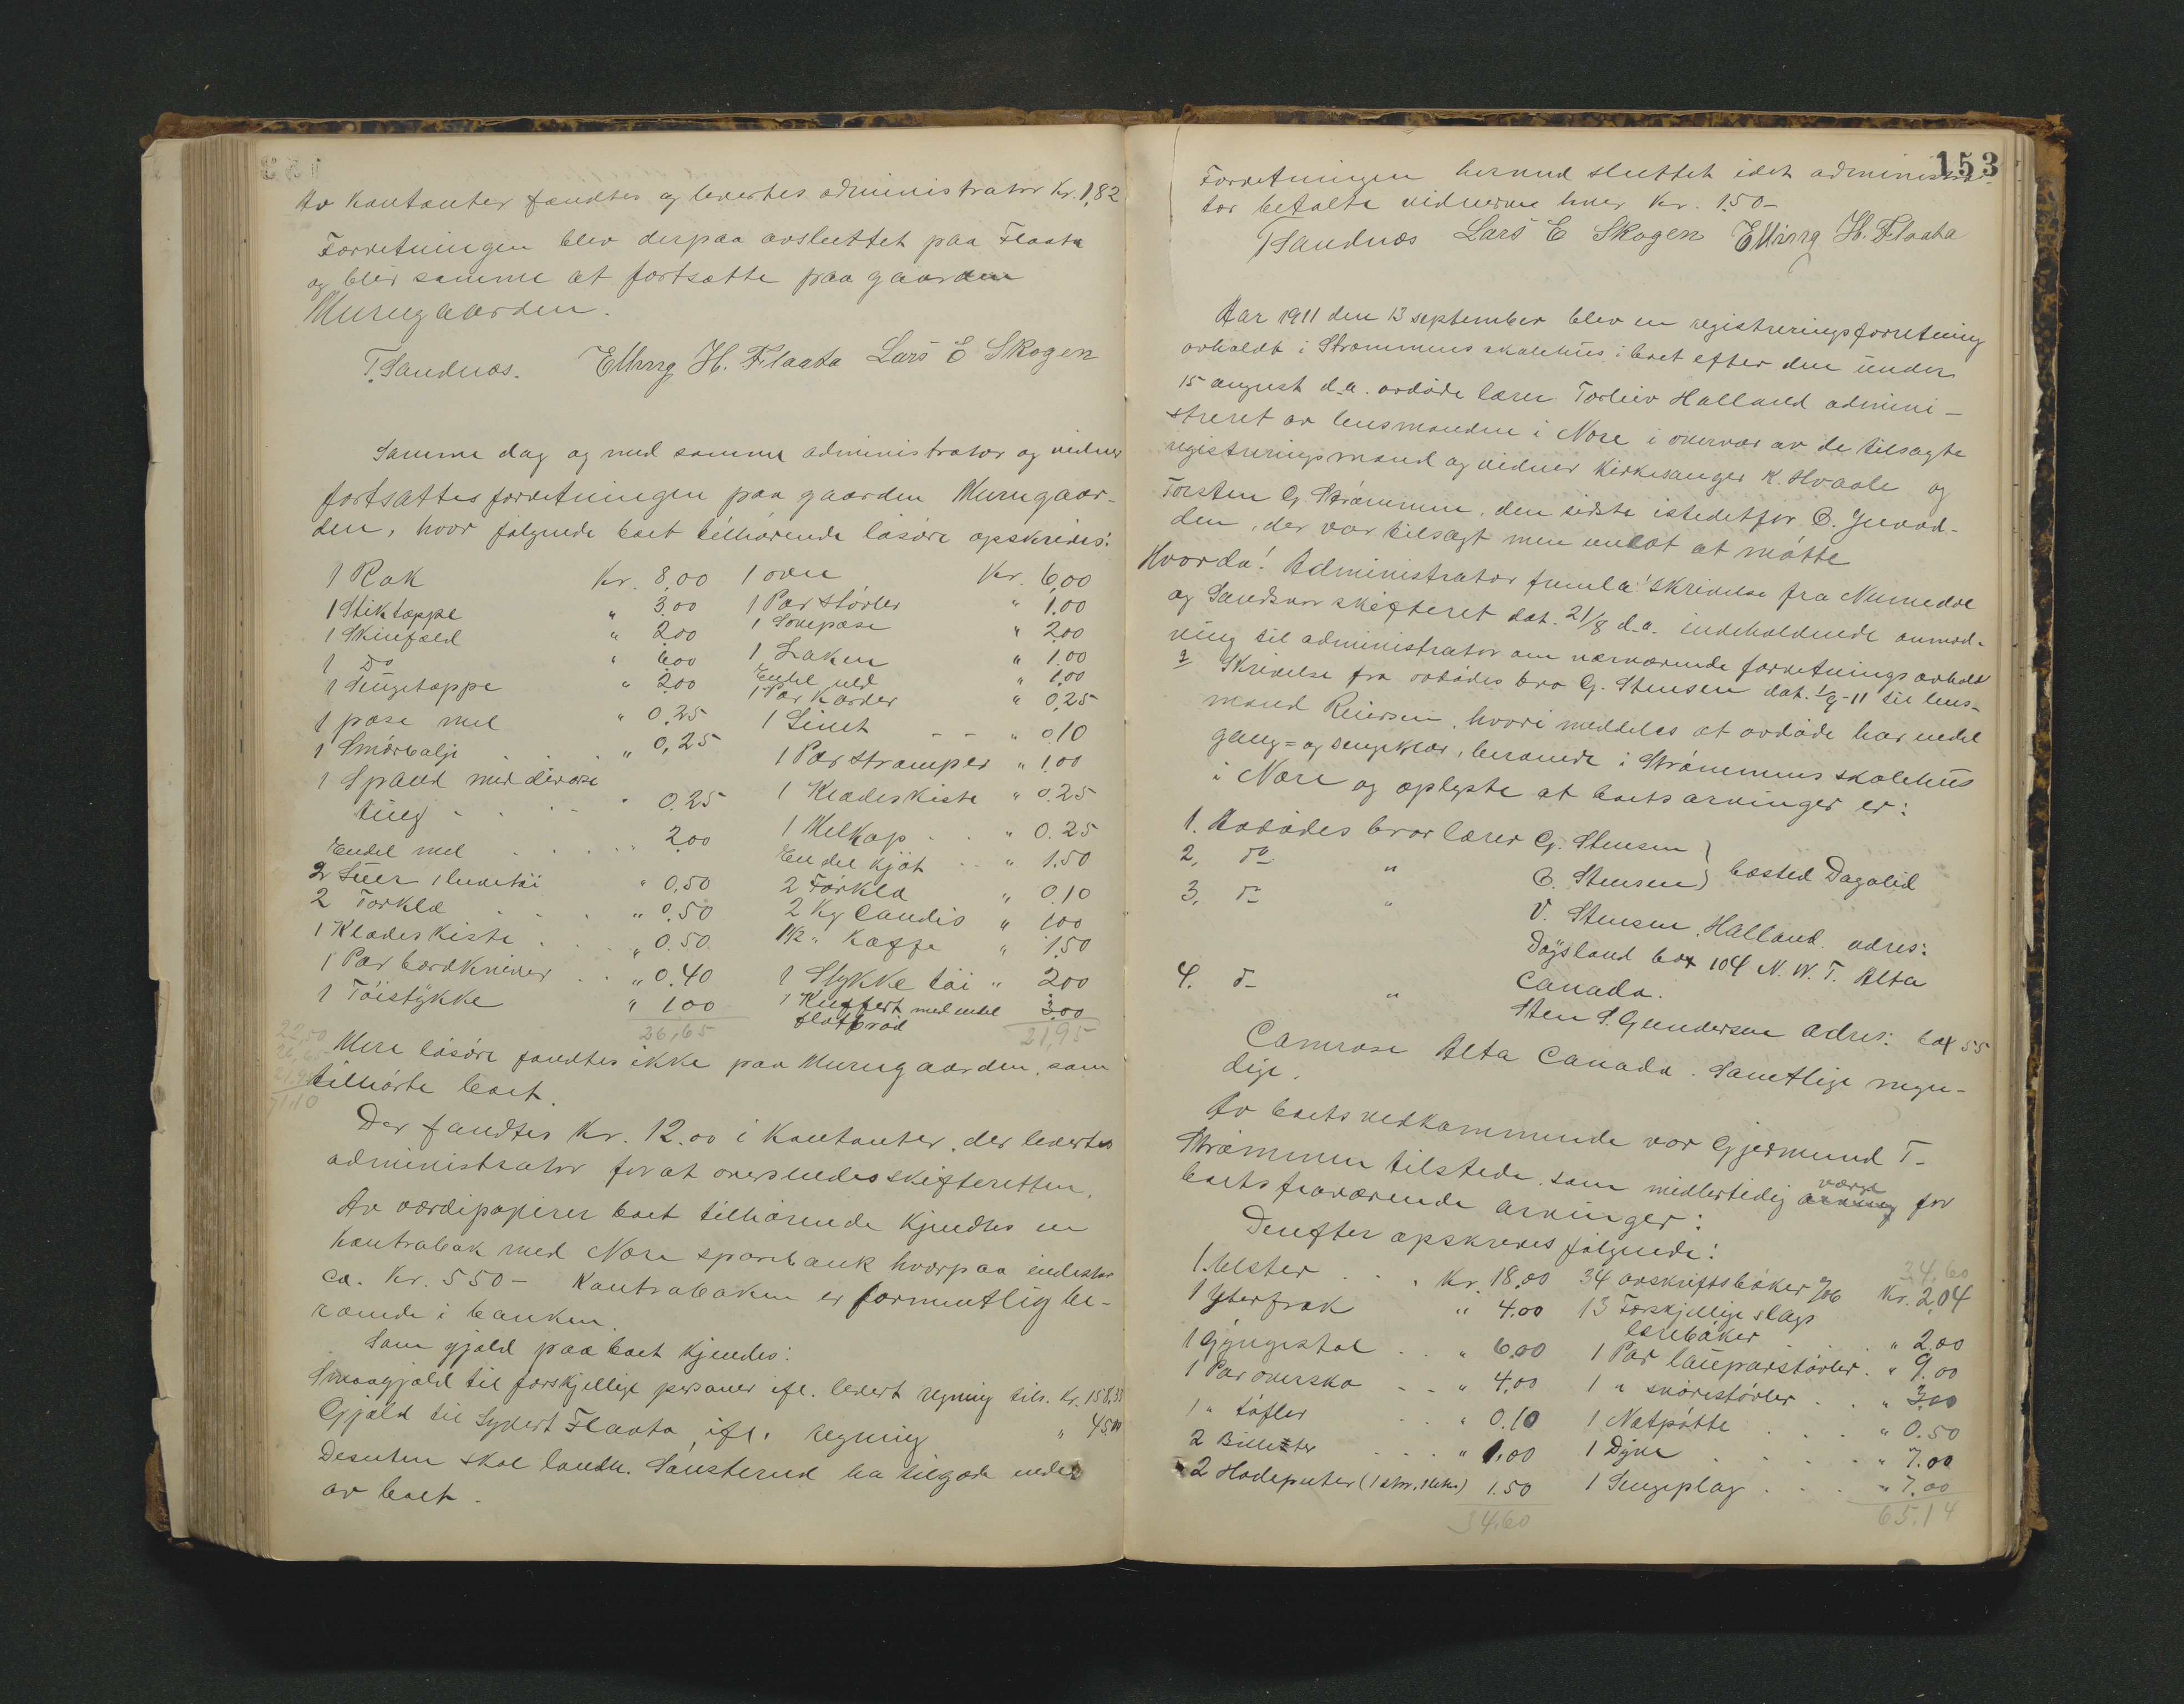 Av Kontanter fandtes og levertes administrator Kr. 1,82
Forretningen blev derpaa avsluttet paa Flaata
og blev samme at fortsætte paa gaarden
Murugaarden.
T. Sandnæs. Elling H. Flaata Lars E Skogen
Samme dag og med samme administrator og vidner
fortsattes forretningen paa gaarden Murugaar-
den, hvor følgende boet tilhørende løsøre opskreves:
1 Rok Kr. 8,00
1 Stiktæppe " 3.00
1 Skinfæld " 2.00
1 Do " 6.00
1 Sengetæppe " 2.00
1 pose mel " 0,25
1 Smörbalje . . . " 0,25
1 Spand med diverse
ting - . . - " 0.25
Endel mel . . . . " 2.00
2 Luer 1 " 0,50
2 Forklæ . . . " 0.50
1 Klædeskiste . . . " 0.50
1 Par bordkniver . . " 0.40
1 Töistykke " 1.00
26,65
1 oven Kr. 6,00
1 Par støvler " 1.00
1 Sovepose " 2.00
1 Laken " 1.00
Endel uld " 1.00
1 Par Karder " 0,25
1 Linet - - " 0.10
1 Par strømper " 1.00
1 Klædeskiste " 0.25
1 Melkop . . " 0.25
Endel Kjöt . . " 1.50
2 Förklæ " 0.10
2 Kg Candis " 100
1 1/2 " Kaffe " 1.50
1 Stykke töi " 2.00
1 Kuffert med endel 3.00
flatbröd
21,95
22,50
26,65
21.95
71.10
Mere løsöre fandtes ikke paa Murugaarden, som
tilhörte boet.
Der fandtes Kr. 12.00 i Kontanter, der levertes
administrator for at oversendes skifteretten.
Av værdipapirer boet tilhörende Kjendtes en
Kontrabok med Nore sparebank hvorpaa indestar
ca. Kr. 550 - Kontraboken er formentlig be-
roende i banken.
Som gjæld paa boet Kjendes:
Smaagjæld til forskjellige personer ifl. levert regning tils. Kr. 158,33
Gjæld til Syvert Flaata, ifl. regning " 45.00
Desuten skal landh. Sønsterud ha tilgode endel
av boet.
153
Forretningen hermed sluttet idet administra-
tor betalte vidnerne hver Kr. 1.50 -
T Sandnæs Lars E Skogen Elling H. Flaata
Aar 1911 den 13 september blev en registreringsforretning
avholdt i Strømmens skolehus i boet efter den under
15 august d.a. avdöde lærer Torleiv Halland admini-
streret av lensmanden i Nore i overvær av de tilsagte
registreringsmænd og vidner Kirkesanger K. Hvaale og
Torsten G. Strömmen, den sidste istedetfor
den, der var tilsagt men undlot at mötte
Hvorda! Administrator fremla: 1 Skrivelse fra Numedal
og Sandsvær skifteret dat. 21/8 d.a. indeholdende anmod-
ning til administrator om nærværende forretnings avhold
2 Skrivelse fra avdödes bror G. Stensen dat. 1/9-11 til lens-
mand Reiersen, hvori meddeles at avdöde har endel
gang= og sengklær, beroende i Strömmens skolehus
i Nore og oplyste at boets arvinger er:
1. Avdödes bror lærer G. Stensen }
2. do " B. Stensen } bosted Dagalid
3. do " V. Stensen Halland. adres:
Daysland box 104 N. W. T. Alta
Canada.
4. d- " Sten S. Gundersen Adres: box 55
Camrose Alta Canada. Samtlige myn-
dige.
Av boets vedkommende var Gjermund T.
Strømmen tilstede som midlertidig arving værge for
boets fraværende arvinger:
Derefter opskreves følgende:
1. Ulster . . . Kr. 18,00
1 Yterfrak " 4.00
1 Gyngestol . . " 6,00
1 Par oversko - - " 4,00
1 " töfler . . " 0.10
2 Billeter - . . . " 1.00
2 Hodeputer (1 stor, 1 liten) 1.50
34,60
34,60
34 avskriftsböker 7/06 Kr. 2,04
13 Forskjellige slags
læreböker . . . " 2.00
1 Par lauparstövler . " 9.00
1 " snörestövler . . " 3,00
1 Natpotte . . . " 0.50
1 Dyne . . . . " 7.00
1 Sengeplag . . . " 7.00
65.14